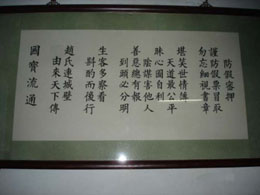 防假密押
謹防假票冒取
勿忘細視書章
堪笑世情薄
天道最公平
昧心圖自利
陰謀害他人
善惡總有報
到頭必分明
生客多察看
斟酌而後行
趙氏連城璧
由來天下傳
國寶流通